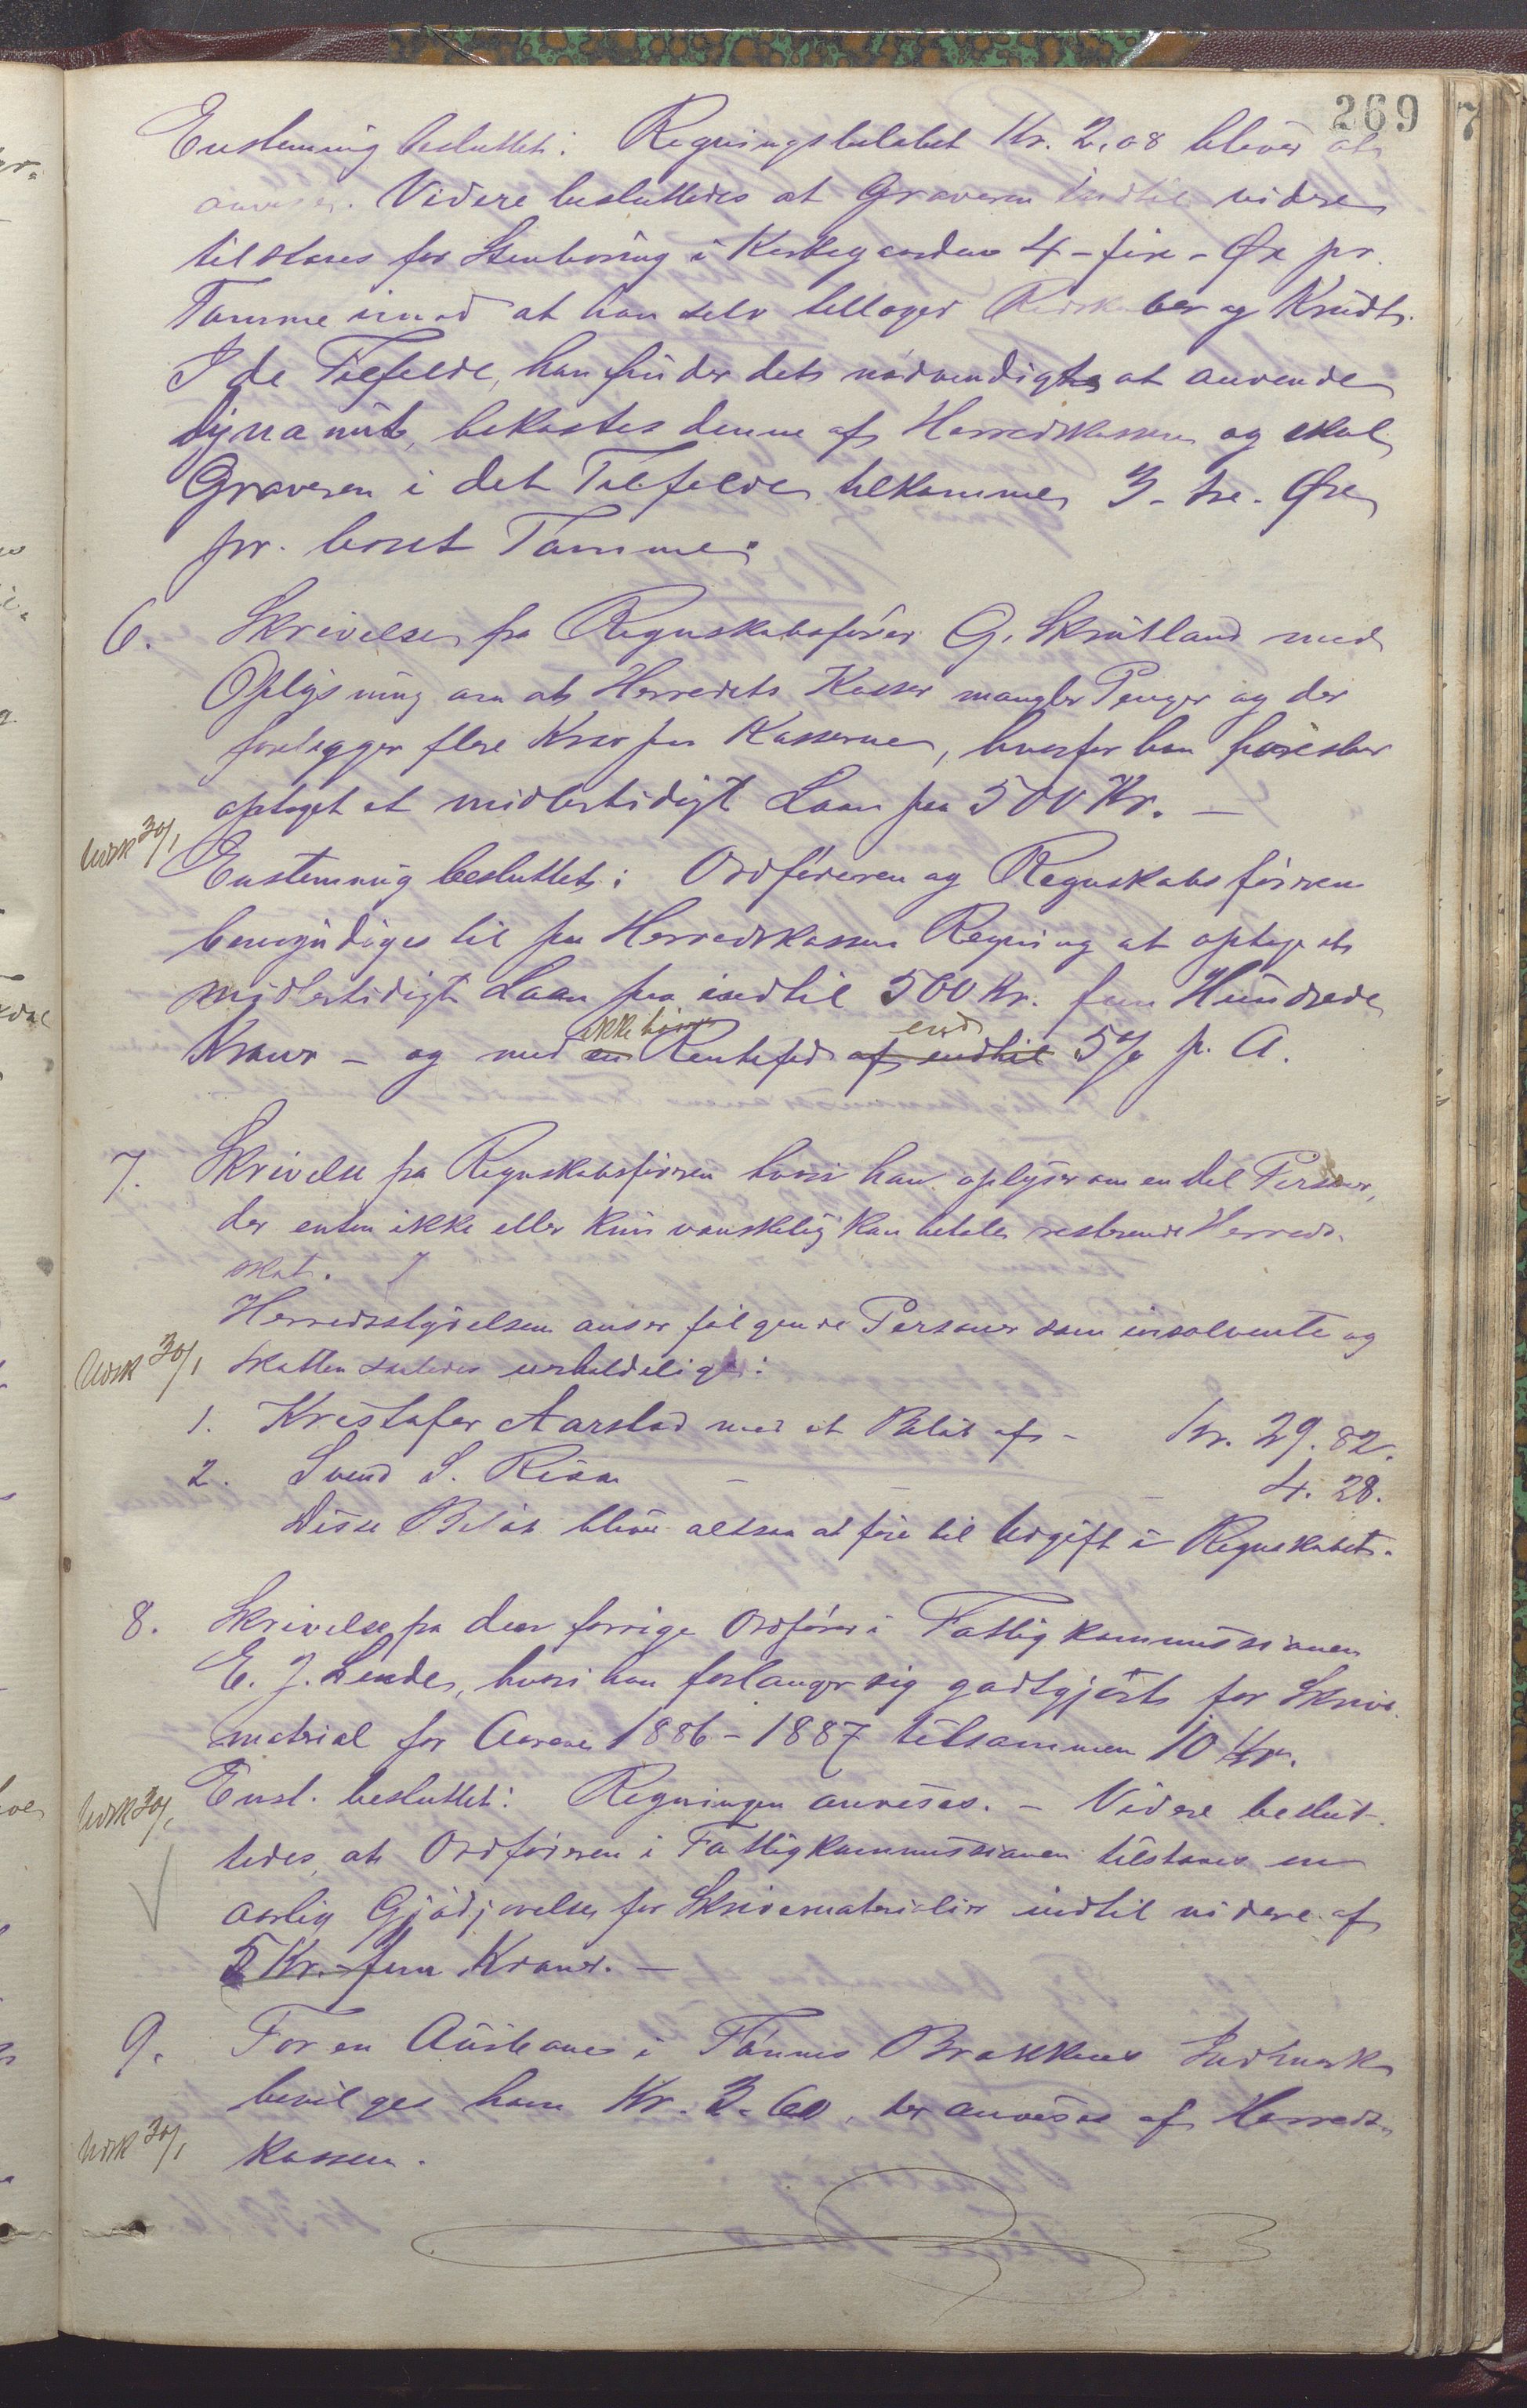 269
Enstemmig besluttet: Regningsbeløbet Kr. 2,08 bliver at
anvises. Videre besluttedes at Graveren indtil videre
tilstaaes for Stenboring i Kirkegaarden 4 - fire - Øre pr.
Tomme imod at han selv Redskaber og Krudt.
I de Tilfælde, han finder det nødvendigt at anvende
Dynamit, bekostes denne af Herredskassen og skal
Graveren i det Tilfælde tilkomme 3 - tre - Øre
pr. boret Tomme.
6. Skrivelse fra Regnskabsfører G. Skrutland med
Oplysning om at Herredets Kasser mangler Penger og der
foreligger flere Krav paa Kasserne, hvorfor han foreslaar
optaget et midlertidigt Laan paa 500 Kr. —
Udsk 30/1
Enstemmig besluttet: Ordføreren og Regnskabsføreren
bemyndiges til paa Herredskassens Regning at optage et
midlertidigt Laan paa indtil 500 Kr. fem Hundrede
Kroner - og med en ikke høiere Rentefod af indtil end 5% p. A.
7. Skrivelse fra Regnskabsføreren hvori han oplyser om en del Personer,
der enten ikke eller kun vanskelig kan betale resterende Herreds-
skat.
Herredsstyrelsen anser følgende Personer som insolvente og
Udsk 30/1
Skatten saaledes uerholdelig:
1. Kristofer Aarstad med et Beløb af - Kr. 29.82.
2. Svend S. Risa — — — 4.28.
Disse Beløb bliver altsaa at føre til Udgift i Regnskabet.
8. Skrivelse fra den forrige Ordfører i Fattigkommissionen
E. J. Lende, hvori han forlanger sig godtgjørt for Skrive-
material for Aarene 1886 - 1887 tilsammen 10 Kr.
Udsk 30/1
Enst. besluttet: Regningen anvises. - Videre beslut-
tedes, at Ordføreren i Fattigkommissionen tilstaaes en
aarlig for Skrivematerialier indtil videre af
5 Kr. - fem Kroner. —
9. For en i Tønnes Brakkens
bevilges ham Kr. 3.60, der anvises af Herreds-
Udsk 30/1
kassen.